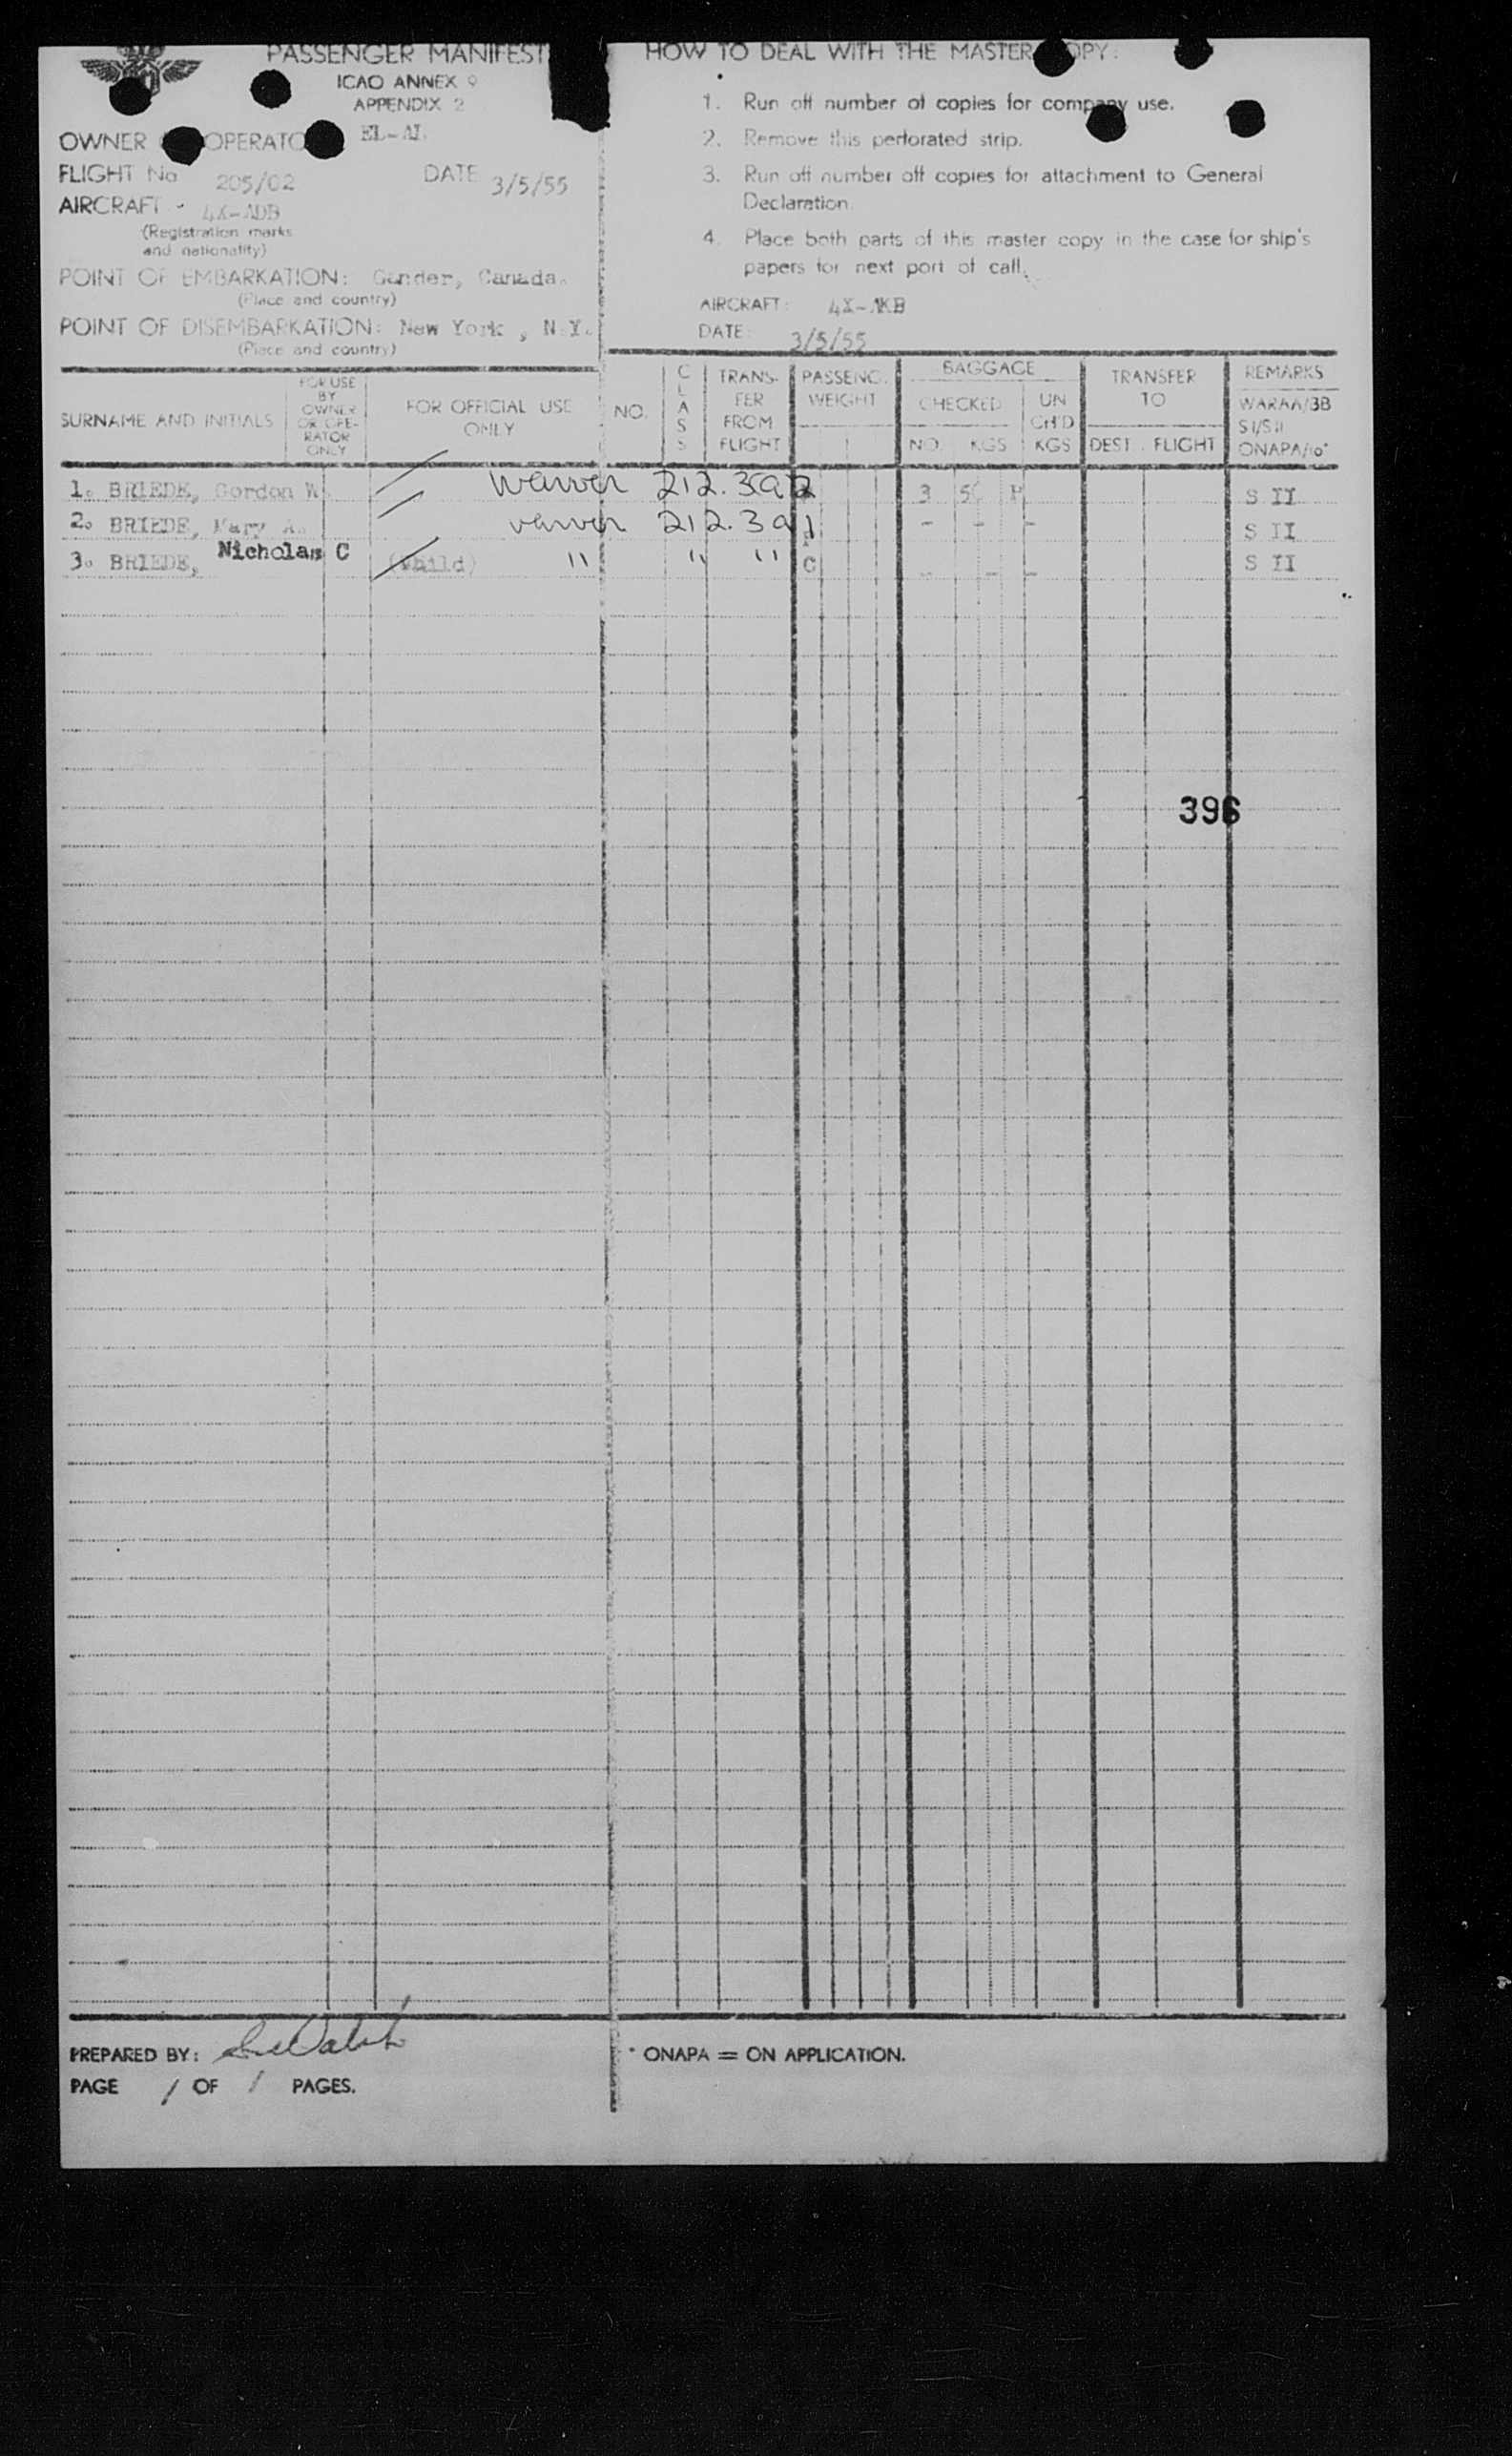 PASSENGER MANIFEST
ICAO ANNEX 9
APPENDIX 2
OWNER OPERATO EL-AL
FLIGHT No 205/02 DATE 3/5/55
AIRCRAFT - 4X-ADB
(Registration marks
and nationality)
POINT OF EMBARKATION: Gander, Canada.
(Place and country)
POINT OF DISEMBARKATION: New York, N.Y.
(Place and country)
HOW TO DEAL WITH THE MASTER OPY:
1. Run off number of copies for company use.
2. Remove this perforated strip.
3. Run off number off copies for attachment to General
Declaration.
4. Place both parts of this master copy in the case for ship's
papers for next port of call.
AIRCRAFT: 4X-AKB
DATE: 3/5/55
SURNAME AND INITIALS
FOR USE
BY
OWNER
OR OPE-
RATOR
ONLY
FOR OFFICIAL USE
ONLY
NO.
CLASS
TRANS-
FER
FROM
FLIGHT
PASSENG.
WEIGHT
BAGGAGE
CHECKED
NO. KGS
UN
CH'D
KGS
TRANSFER
TO
DEST. FLIGHT
REMARKS
WARAA/3B
SI/SII
ONAPA/10*
1. BRIEDE, Gordon W. Waiver 212.3(a) 3 5 P S II
2. BRIEDE, Mary A. waiver 212.3a - - - S II
3. BRIEDE, Nicholas C (Child) " " " C - - - S II
396
PREPARED BY:
PAGE 1 OF 1 PAGES.
* ONAPA = ON APPLICATION.